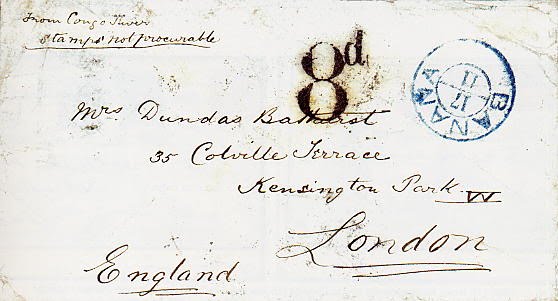 From Congo River
Stamps not procurable
8d
BANANA
17
11
Mrs Dundas Bathurst
35 Colville Terrace
Kensington Park W
London
England